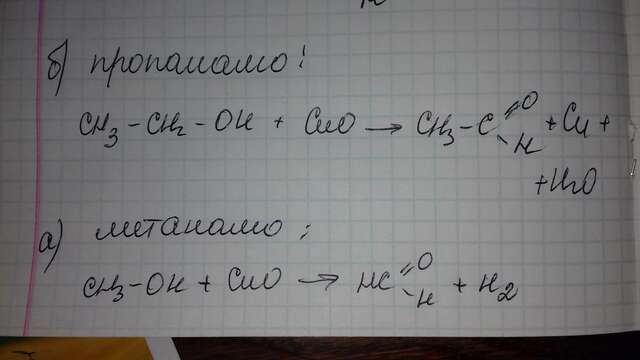 б) пропаналю:
CH3-CH2-OH + CuO → CH3-C=O-H + Cu +
+ H2O
а) метаналю:
CH3-OH + CuO → HC=O-H + H2